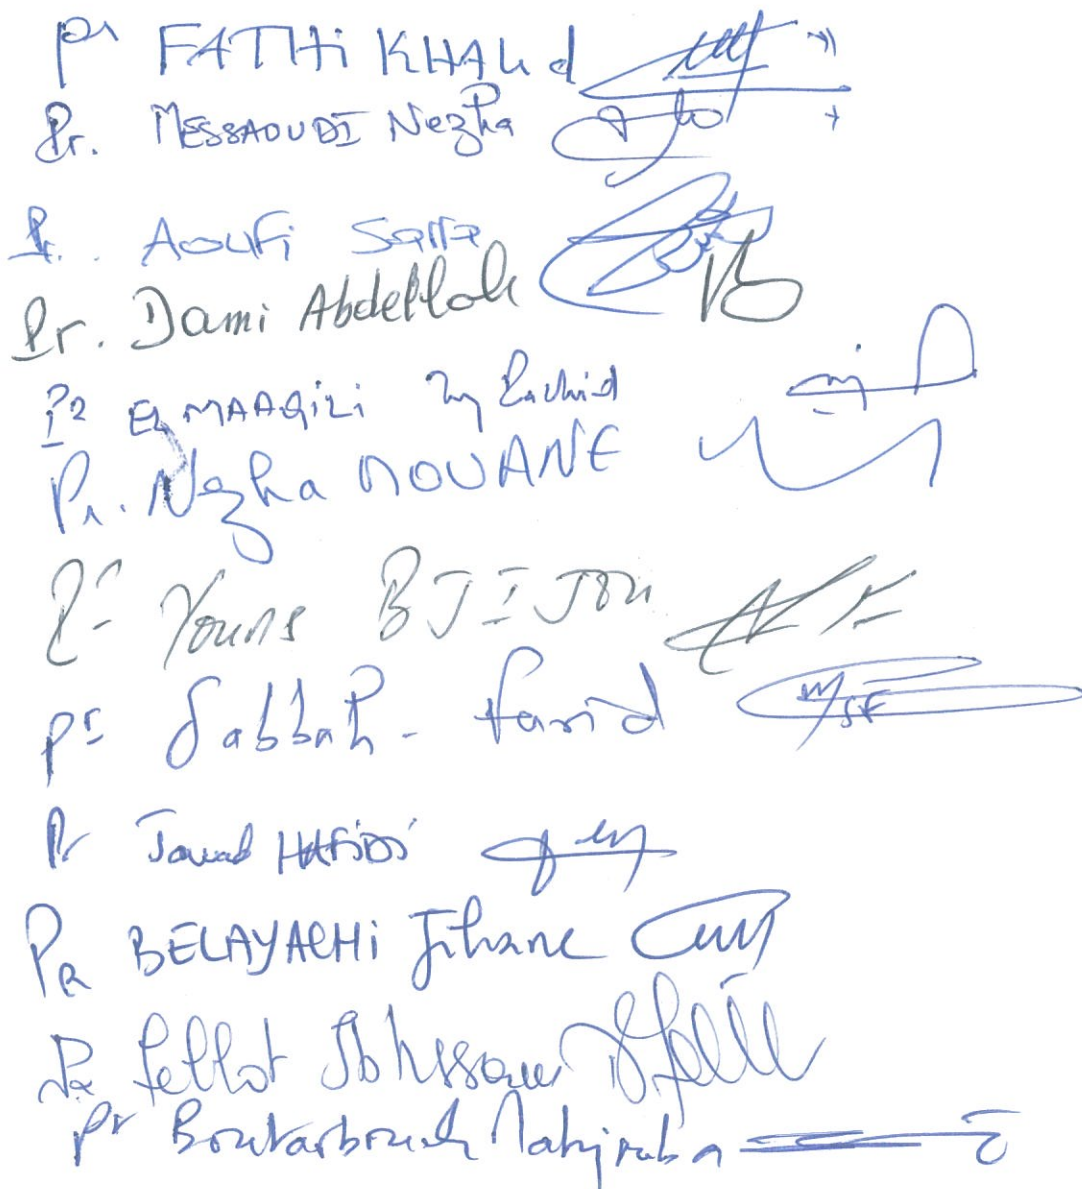 Pr FATHi KHALid
Pr. MESSAOUDI Nezha
Pr. Aoufi Sarra
Pr. Dami Abdellah
Pr EL MAAQiLi My Rachid
Pr. Nezha MOUANE
Pr Younes BJIJOU
Pr Sabbah - farid
Pr Jawad HAFiDi
Pr BELAYACHi Jihane
Pr fellat
Pr Boutarbouch Mahjouba